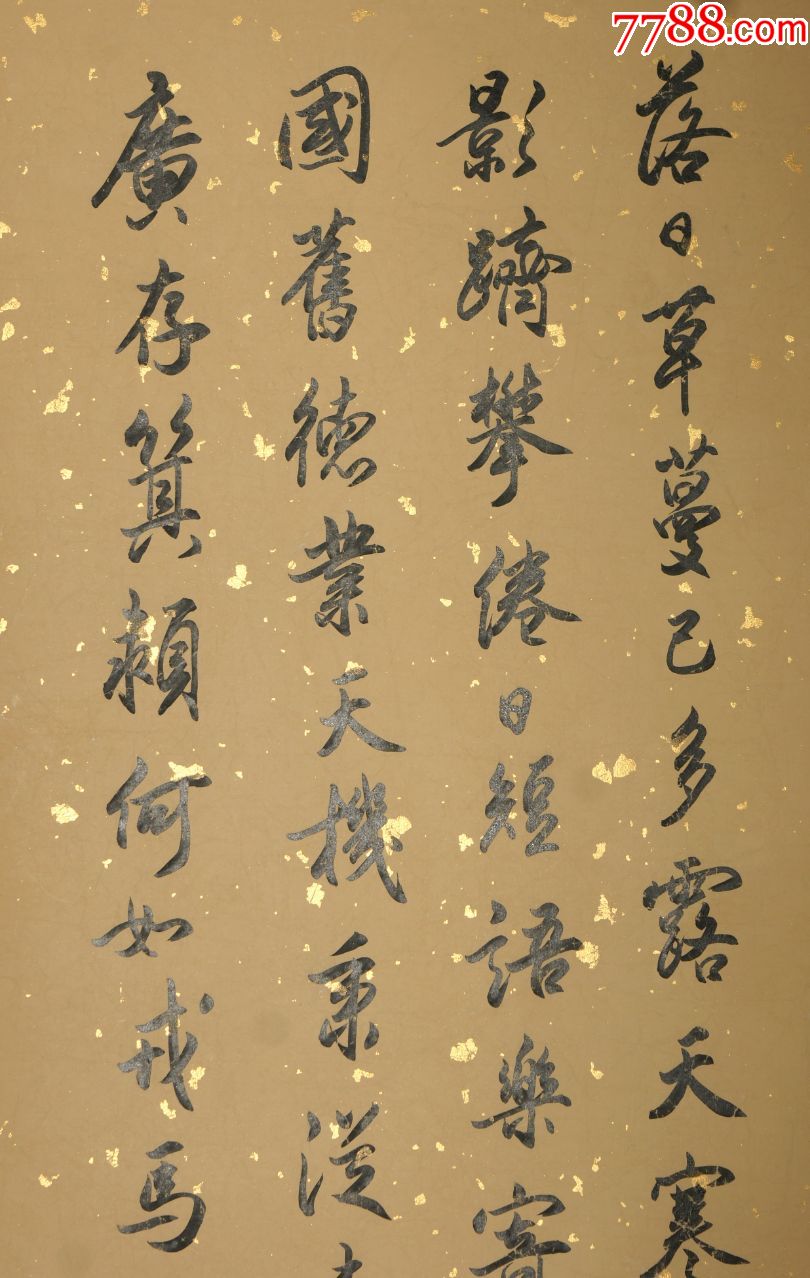 7788.com
落日草蔓已多露天寒
影躋攀倦日短語樂寄
國舊德業天機秉從
廣存箕潁何如戎馬